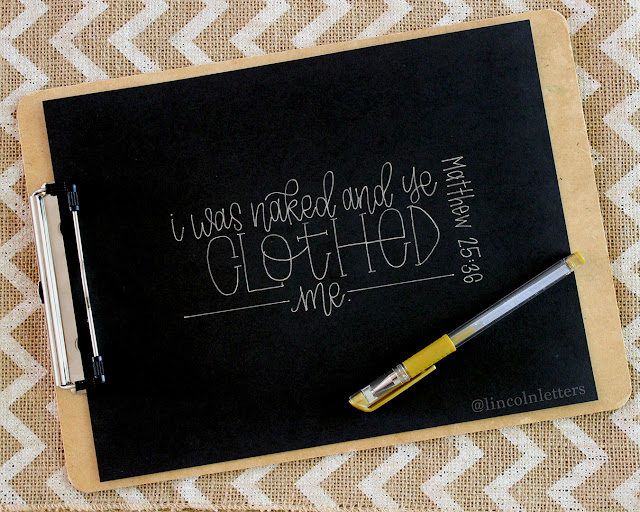 i was naked and ye
CLOTHED
me.
Matthew 25:36
@lincolnletters